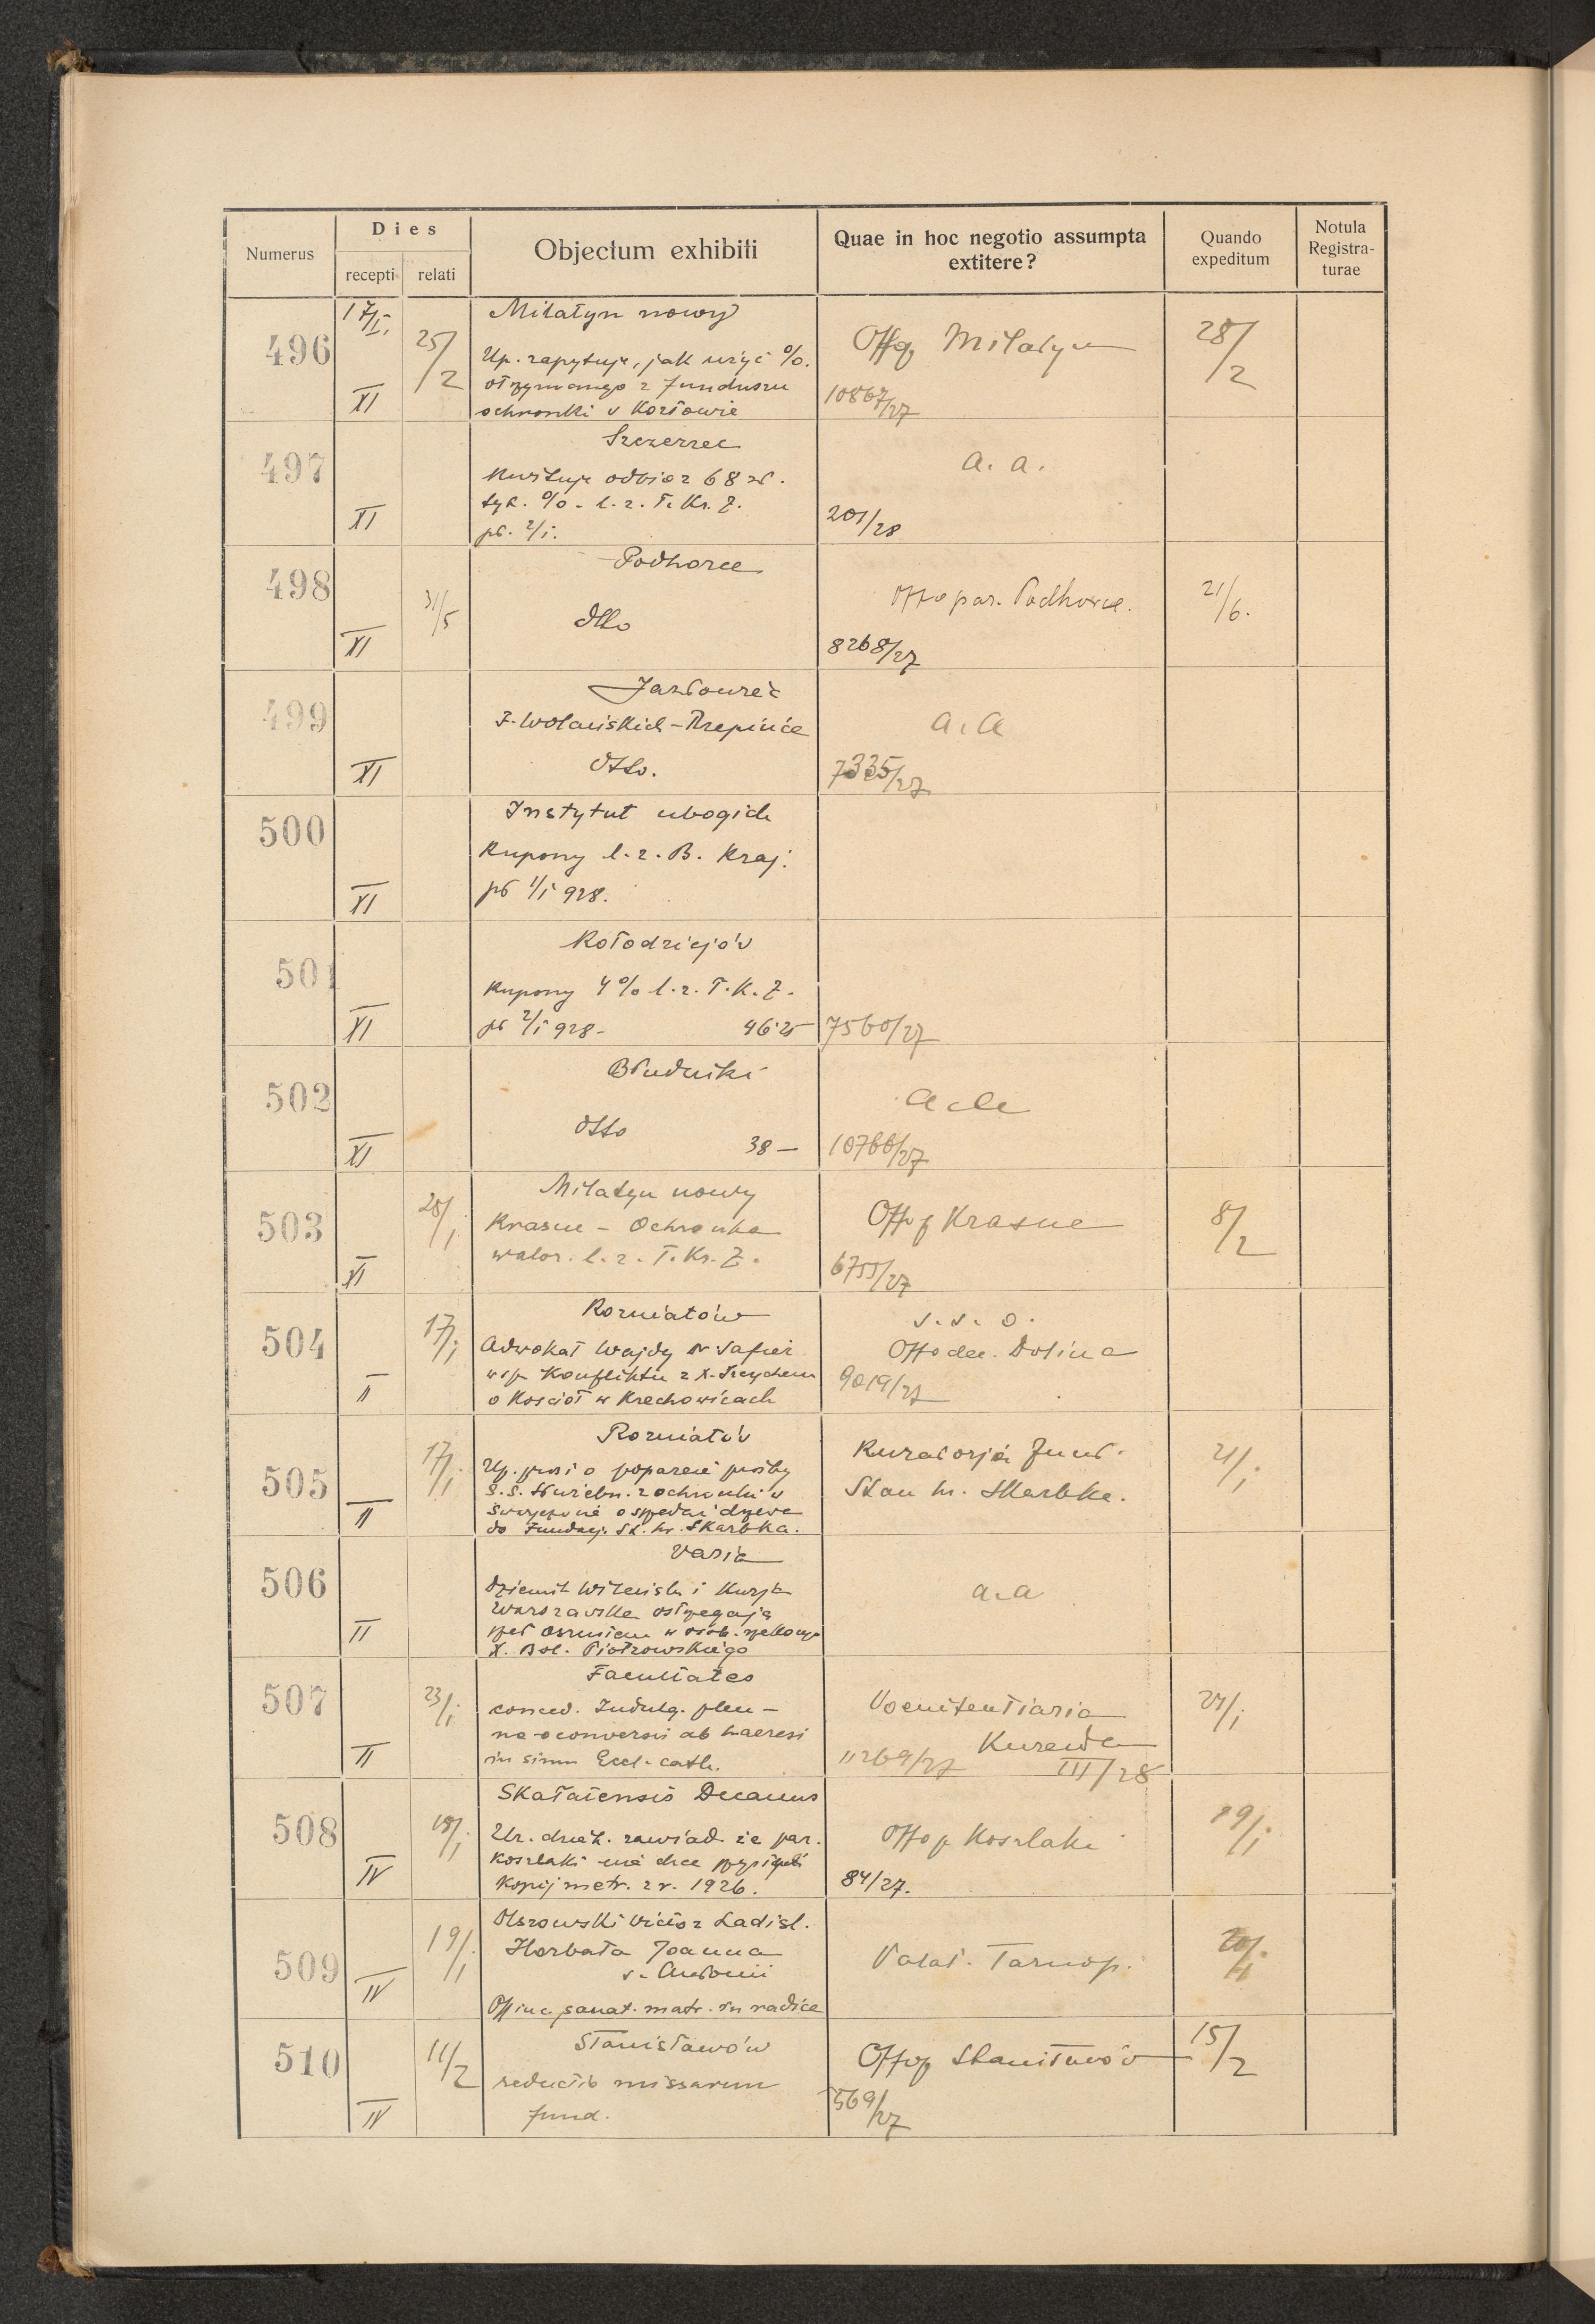 Numerus
Dies
recepti
relati
Objectum exhibiti
Quae in hoc negotio assumpta extitere?
Quando expeditum
Notula Registra-turae
496
17/I.
XI
25/2
Milatyn nowy
Up. zapytuje, jak użyć %.
otrzymanego z funduszu
ochronki w Kozłowie
Offo Milatyn
10867/27
28/2
497
XI
Szczerzec
Kwituje odbiór 68 zł.
tyt. %. l. z. T. Kr. Z.
pł. 2/I.
a. a.
201/28
498
XI
31/5
Podhorce
dtto
Offo par. Podhorce.
8268/27
21/6.
499
XI
Jazłowiec
F. Wolańskich - Rzepińce
dtto.
a. a
7335/27
500
XI
Instytut ubogich
Kupony l. z. B. Kraj.
pł 1/I 928.
501
XI
Kołodziejów
Kupony 4% l. z. T. K. Z.
pł 2/I 928 - 46·25
7560/27
502
XI
Błudniki
dtto 38 —
a a
10766/27
503
XI
28/I
Milatyn nowy
Krasne - Ochronka
walor. l. z. T. Kr. Z.
Offo p Krasne
6755/27
8/2
504
II
17/I
Rozniatów
Adwokat Wajdy Dr Safier
w sp. Konfliktu z X.
o Kościół w Krechowicach
s. s. o.
Offo dec. Dolina
9019/27
505
II
17/I
Rozniatów
Up. prosi o poparcie prośby
S. S. Służebn. z ochronki w
o sprzedaż drzewa
do Fundacji St. hr. Skarbka.
Kuratorja Fund.
Stan hr. Skarbka.
21/I
506
II
Varia
Dziennik Wileński i Kurja
Warszawska ostrzegają
przed oszustem w osob. rzekomego
X. Bol. Piotrowskiego
a. a
507
II
23/I
Facultates
conced. Indulg. ple-
na conversis ab haeresi
in sinum Eccl. cath.
Poenitentiaria
Kurenda
11269/27 III/28
24/I
508
IV
18/I
Skałatensis Decanus
Ur. dziek. zawiad. że par.
Koszlaki nie chce przysłać
Kopij metr. z r. 1926.
Offo p Koszlaki
84/27.
19/I
509
IV
19/I
Olszowski Victor Ladisl.
Horbata Joanna
s. Antonii
Offium sanat. matr. in radice
Palat. Tarnop.
20/I
510
IV
11/2
Stanisławów
reductio missarum
fund.
Offo p Stanisławów
569/27
15/2